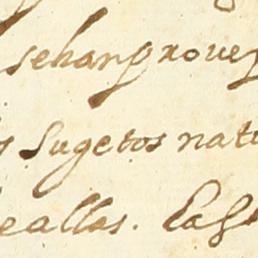 sehan prove
s sugetos natu
eallas. Las